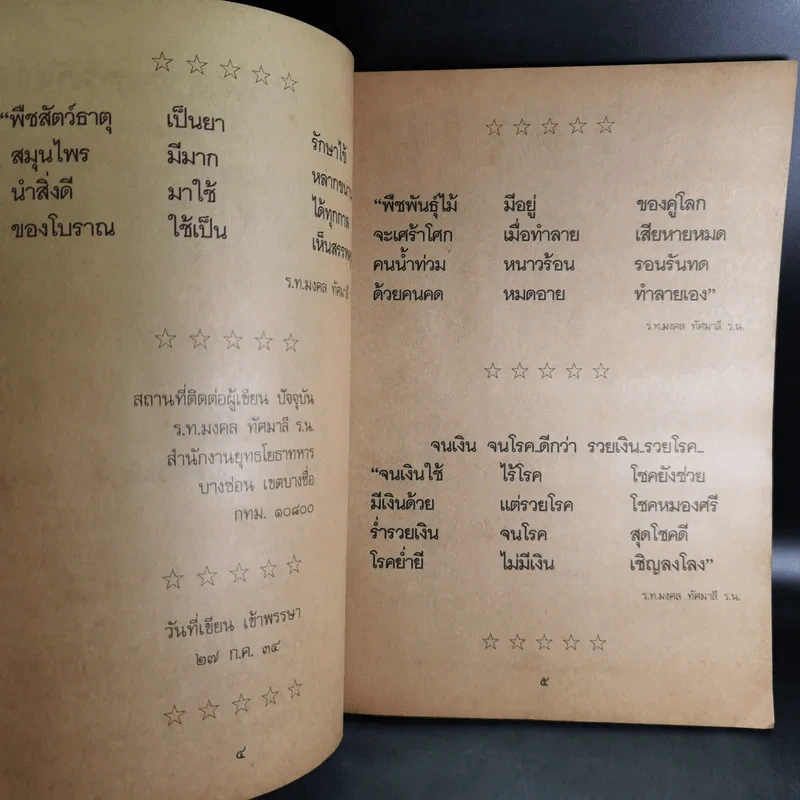 ☆ ☆ ☆ ☆ ☆
“พืชสัตว์ธาตุ เป็นยา รักษาไข้
สมุนไพร มีมาก
นำสิ่งดี มาใช้ ได้ทุกกาล
ของโบราณ ใช้เป็น
ร.ท.มงคล ทัศมาลี
☆ ☆ ☆ ☆ ☆
สถานที่ติดต่อผู้เขียน ปัจจุบัน
ร.ท.มงคล ทัศมาลี ร.น.
สำนักงานยุทธโยธาทหาร
บางซ่อน เขตบางซื่อ
กทม. ๑๐๘๐๐
☆ ☆ ☆ ☆ ☆
วันที่เขียน เข้าพรรษา
๒๗ ก.ค. ๓๔
☆ ☆ ☆ ☆ ☆
๔
☆ ☆ ☆ ☆ ☆
“พืชพันธุ์ไม้ มีอยู่ ของคู่โลก
จะเศร้าโศก เมื่อทำลาย เสียหายหมด
คนน้ำท่วม หนาวร้อน รอนรันทด
ด้วยคนคด หมดอาย ทำลายเอง”
ร.ท.มงคล ทัศมาลี ร.น.
☆ ☆ ☆ ☆ ☆
จนเงิน จนโรค..ดีกว่า รวยเงิน..รวยโรค...
“จนเงินใช้ ไร้โรค โชคยังช่วย
มีเงินด้วย แต่รวยโรค โชคหมองศรี
ร่ำรวยเงิน จนโรค สุดโชคดี
โรคย่ำยี ไม่มีเงิน เชิญลงโลง”
ร.ท.มงคล ทัศมาลี ร.น.
☆ ☆ ☆ ☆ ☆
๕